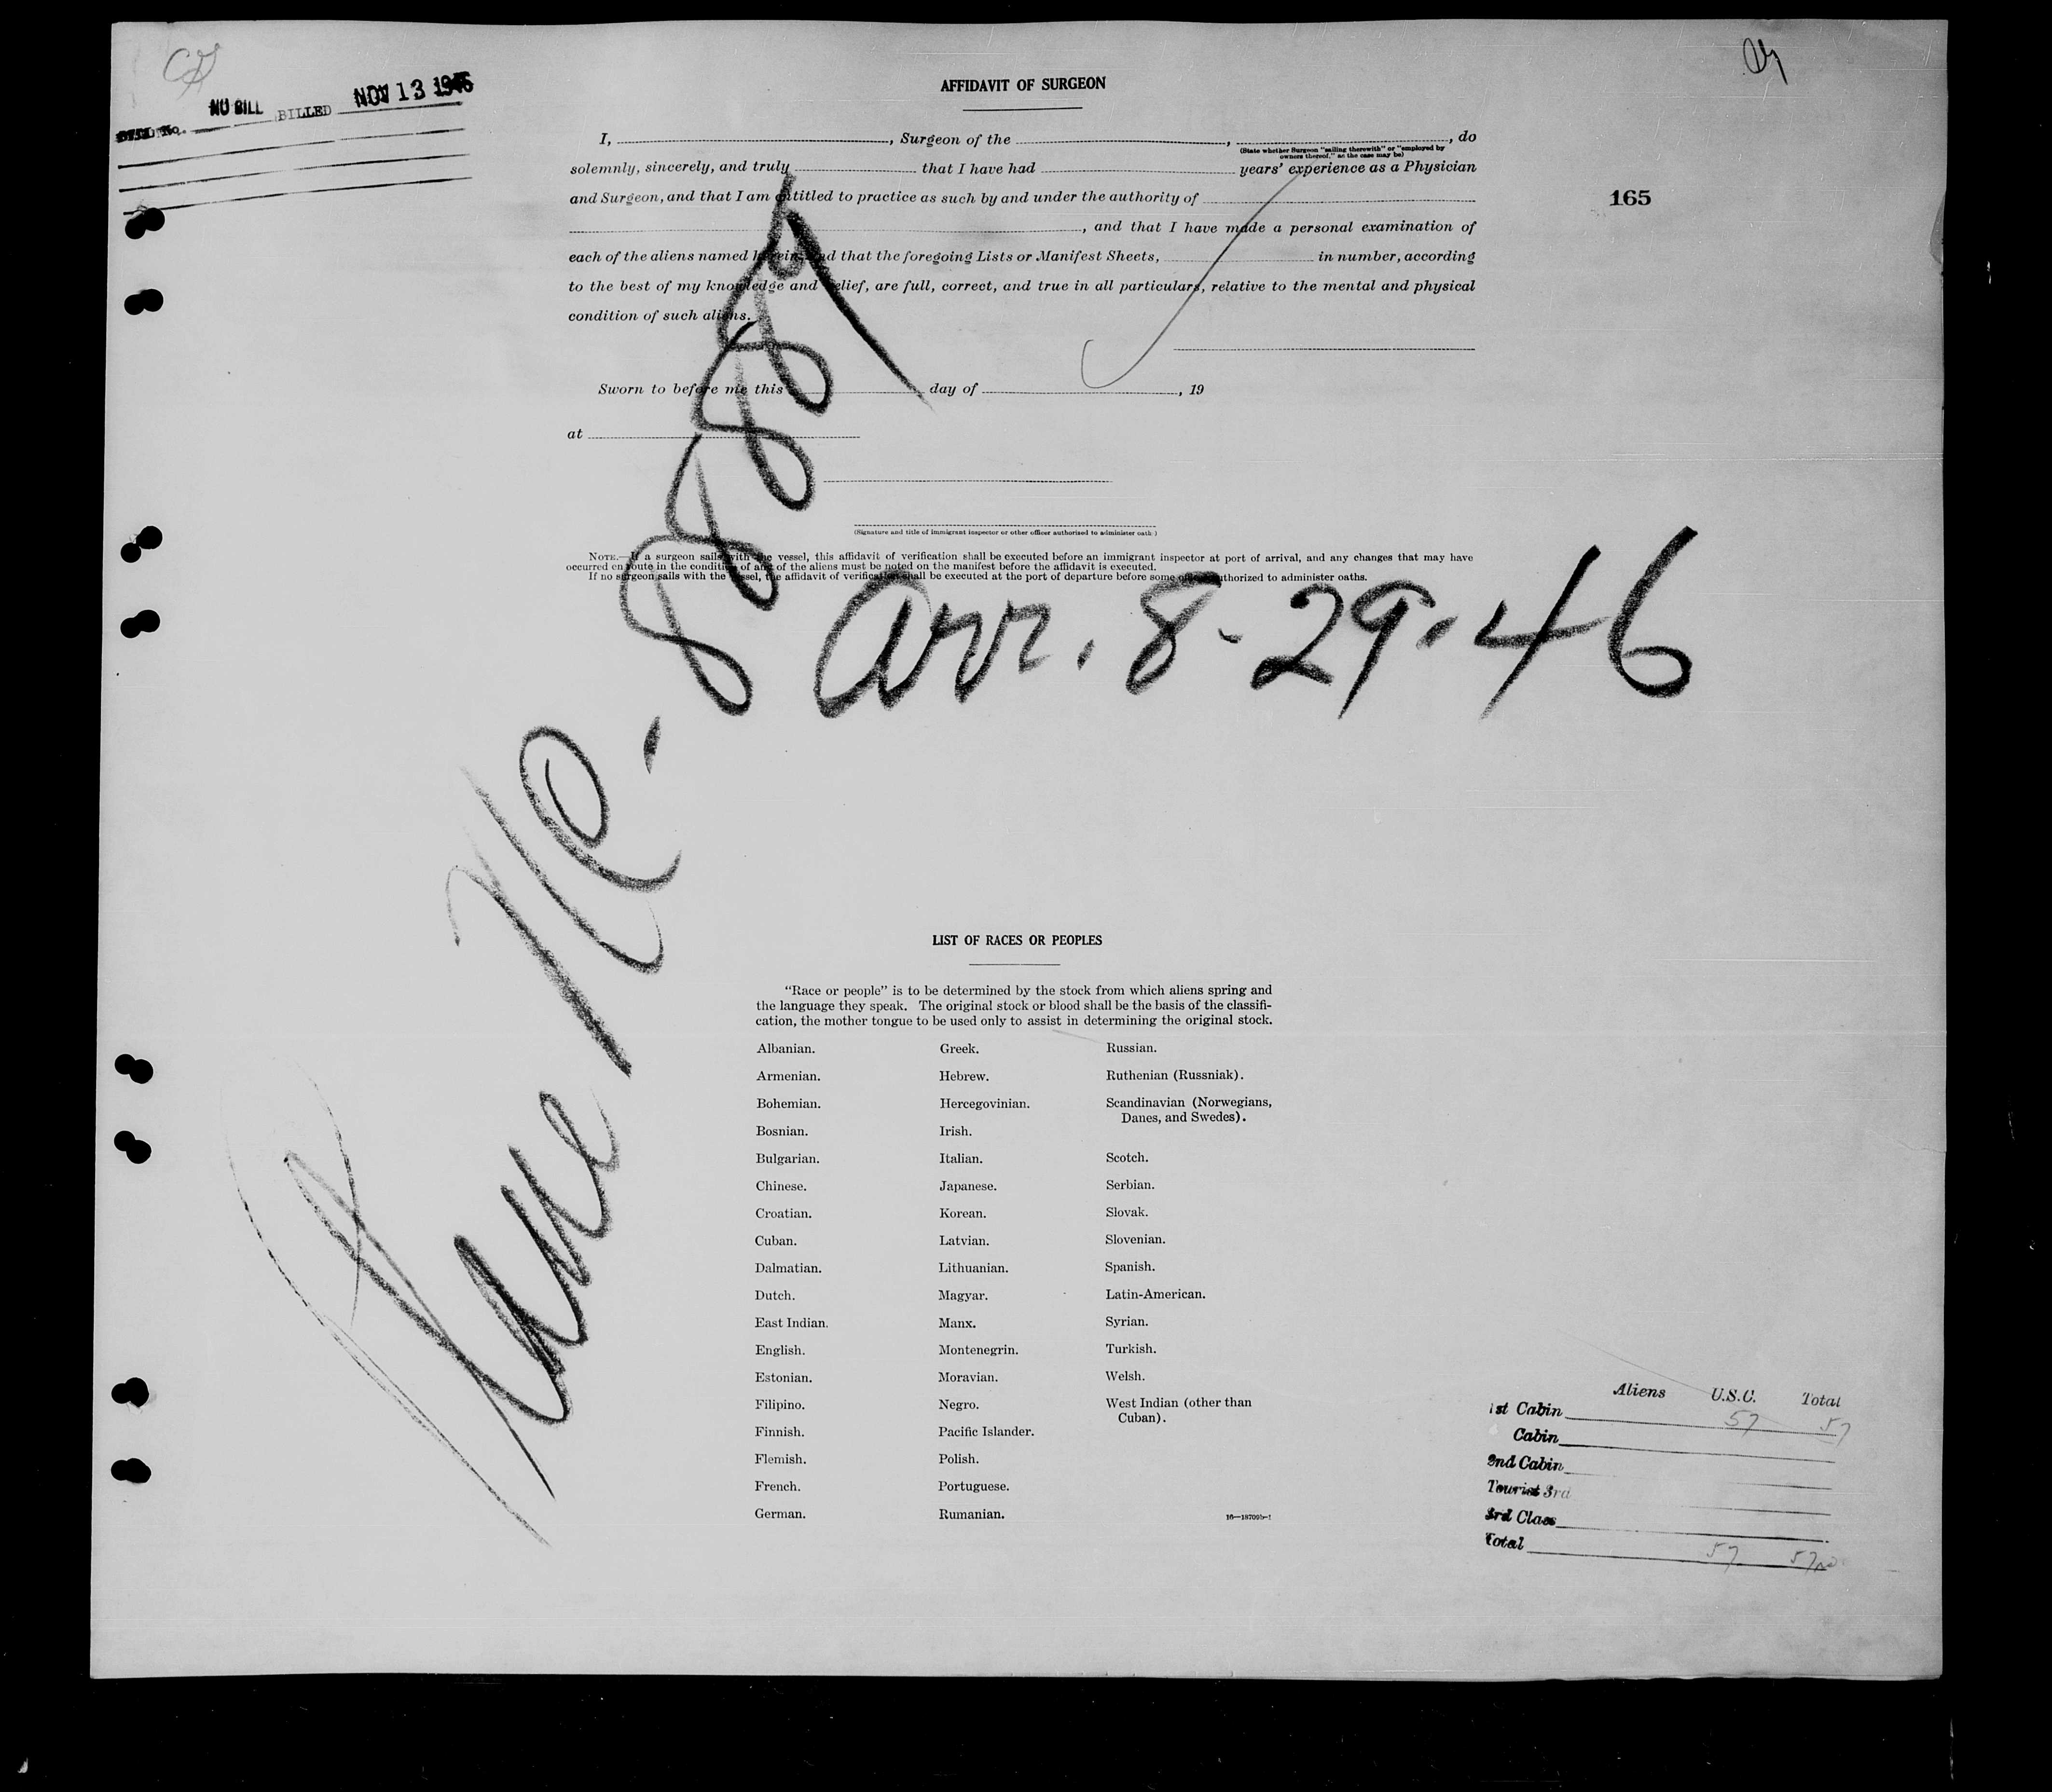 NO BILL BILLED NOV 13 1946
AFFIDAVIT OF SURGEON
I, , Surgeon of the , , do
(State whether Surgeon "sailing therewith" or "employed by
owners thereof," as the case may be)
solemnly, sincerely, and truly that I have had years' experience as a Physician
and Surgeon, and that I am entitled to practice as such by and under the authority of
165
, and that I have made a personal examination of
each of the aliens named herein, and that the foregoing Lists or Manifest Sheets, in number, according
to the best of my knowledge and belief, are full, correct, and true in all particulars, relative to the mental and physical
condition of such aliens.
Sworn to before me this day of , 19
at
(Signature and title of immigrant inspector or other officer authorized to administer oath)
NOTE.—If a surgeon sails with the vessel, this affidavit of verification shall be executed before an immigrant inspector at port of arrival, and any changes that may have
occurred en route in the condition of any of the aliens must be noted on the manifest before the affidavit is executed.
If no surgeon sails with the vessel, the affidavit of verification shall be executed at the port of departure before some officer authorized to administer oaths.
Plane No. 88889
arr. 8-29-46
LIST OF RACES OR PEOPLES
"Race or people" is to be determined by the stock from which aliens spring and
the language they speak. The original stock or blood shall be the basis of the classifi-
cation, the mother tongue to be used only to assist in determining the original stock.
Albanian. Greek. Russian.
Armenian. Hebrew. Ruthenian (Russniak).
Bohemian. Hercegovinian. Scandinavian (Norwegians,
Danes, and Swedes).
Bosnian. Irish.
Bulgarian. Italian. Scotch.
Chinese. Japanese. Serbian.
Croatian. Korean. Slovak.
Cuban. Latvian. Slovenian.
Dalmatian. Lithuanian. Spanish.
Dutch. Magyar. Latin-American.
East Indian. Manx. Syrian.
English. Montenegrin. Turkish.
Estonian. Moravian. Welsh.
Filipino. Negro. West Indian (other than
Cuban).
Finnish. Pacific Islander.
Flemish. Polish.
French. Portuguese.
German. Rumanian.
16—18709b-1
Aliens U.S.C. Total
1st Cabin 57 57
Cabin
2nd Cabin
Tourist 3rd
3rd Class
Total 57 57